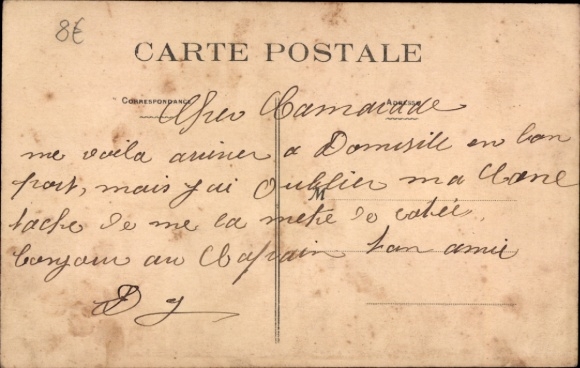 8€
CARTE POSTALE
CORRESPONDANCE
ADRESSE
Cher Camarade
me voila arriver a Domisile en bon
port, mais j'ai oublier ma Cane
tache de me la metre de cotée.
M
bonjour au Captain ton amie